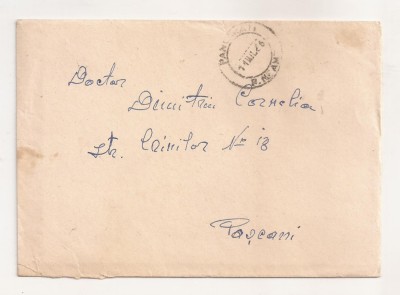 Doctor
Dumitriu Cornelia
str. Crinilor No 18
Pașcani